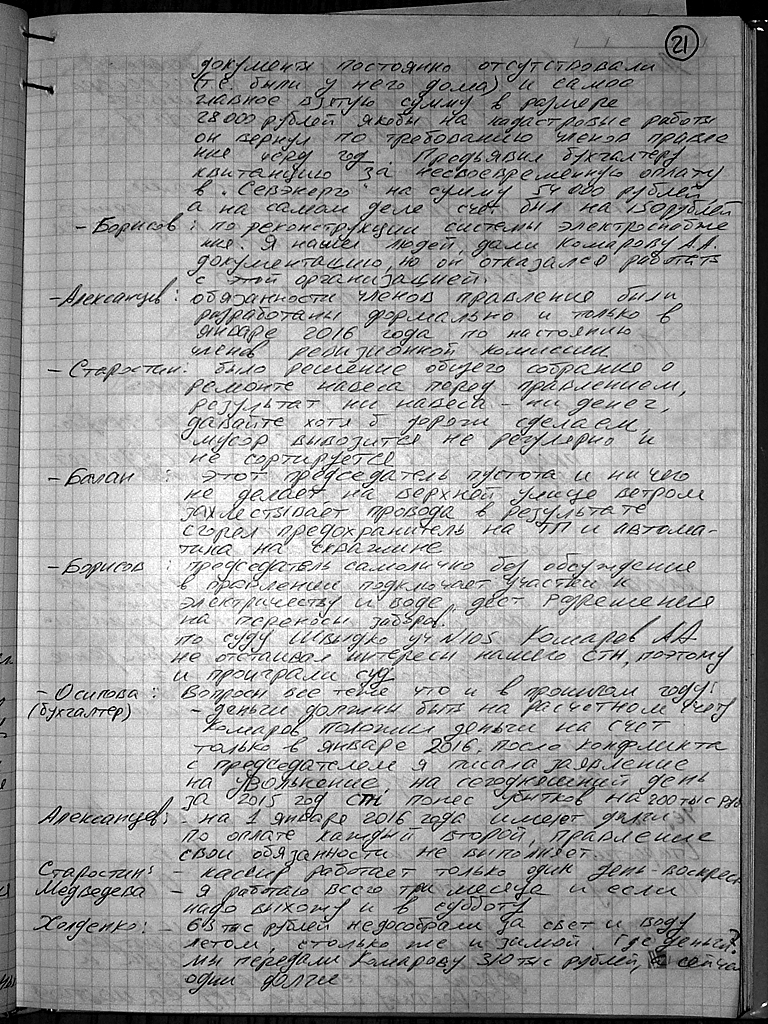 21
документы постоянно отсутствовали
(т.е. были у него дома) и самое
главное взятую сумму в размере
28000 рублей якобы на кадастровые работы
он вернул по требованию членов правле
ния через год. Предъявил бухгалтеру
квитанцию за несвоевременную оплату
в "Севэнерго" на сумму 54000 рублей
а на самом деле счет был на 150 рублей
- Борисов : по реконструкции системы электроснабже
ния. Я нашел людей, дали Комарову А.А.
документацию, но он отказался работать
с этой организацией.
- Александцев : обязанности членов правления были
разработаны формально и только в
январе 2016 года по настоянию
членов ревизионной комиссии
- Старостин : было решение общего собрания о
ремонте навеса перед правлением,
результат ни навеса - ни денег,
давайте хотя б дороги сделаем,
мусор вывозится не регулярно и
не сортируется
- Балан : этот председатель пустота и ничего
не делает на верхней улице ветром
захлестывает провода в результате
сгорел предохранитель на ТП и автома-
тика на скважине
- Борисов : председатель самолично без обсуждения
в правлении подключает участки к
электричеству и воде, дает разрешения
на переносы забора.
по суду Швыдко уч N105 Комаров АА
не отстаивал интересы нашего стн, поэтому
и проиграли суд
- Осипова : Вопросы все те же что и в прошлом году!
(бухгалтер) - деньги должны быть на расчетном счету
Комаров положил деньги на счет
только в январе 2016. после конфликта
с председателем я писала заявление
на увольнение, на сегодняшний день
за 2015 год стн понес убытков на 200 тыс руб
Александцев : - на 1 января 2016 года имеют долги
по оплате каждый второй, правление
свои обязанности не выполняет
Старостин : - кассир работает только один день - воскресе
Медведева - я работаю всего три месяца и если
надо выхожу и в субботу
Холденко : - 65 тыс рублей недособрали за свет и воду
летом, столько же и зимой. Где деньги?
мы передали Комарову 310 тыс рублей, а сейча
одни долги